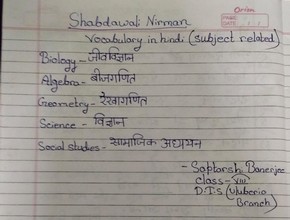 Orion
PAGE
DATE
Shabdawali Nirman
Vocabulary in hindi (subject related)
Biology - जीवविज्ञान
Algebra - बीजगणित
Geometry - रेखागणित
Science - विज्ञान
Social studies - सामाजिक अध्ययन
- Saptarsh Banerjee
class - VIII
D.I.S (Uluberia
Branch)